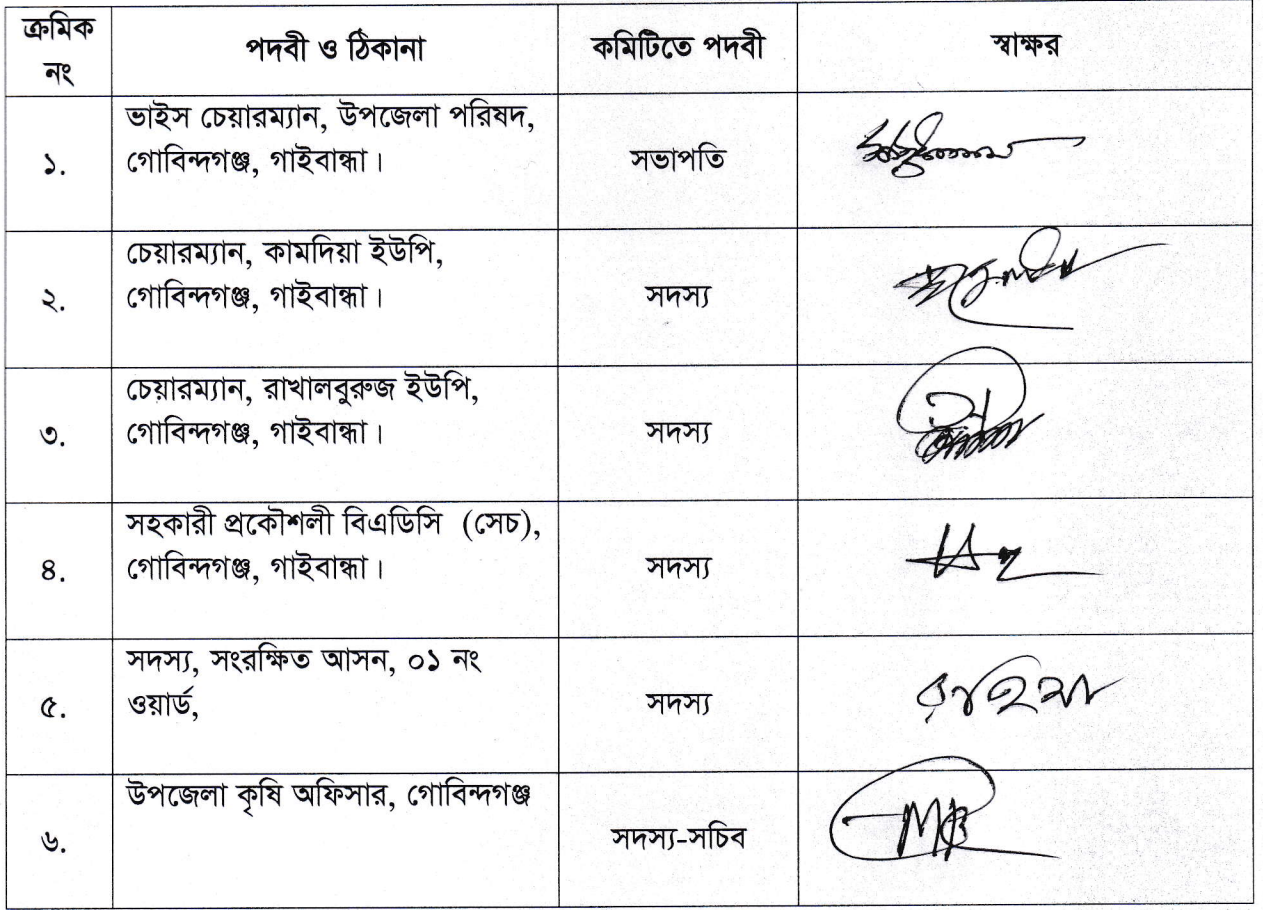 ক্রমিক
নং
পদবী ও ঠিকানা
কমিটিতে পদবী
স্বাক্ষর
ভাইস চেয়ারম্যান, উপজেলা পরিষদ,
১. গোবিন্দগঞ্জ, গাইবান্ধা। সভাপতি
চেয়ারম্যান, কামদিয়া ইউপি,
২. গোবিন্দগঞ্জ, গাইবান্ধা। সদস্য
চেয়ারম্যান, রাখালবুরুজ ইউপি,
৩. গোবিন্দগঞ্জ, গাইবান্ধা। সদস্য
সহকারী প্রকৌশলী বিএডিসি (সেচ),
৪. গোবিন্দগঞ্জ, গাইবান্ধা। সদস্য
সদস্য, সংরক্ষিত আসন, ০১ নং
৫. ওয়ার্ড, সদস্য
উপজেলা কৃষি অফিসার, গোবিন্দগঞ্জ
৬. সদস্য-সচিব